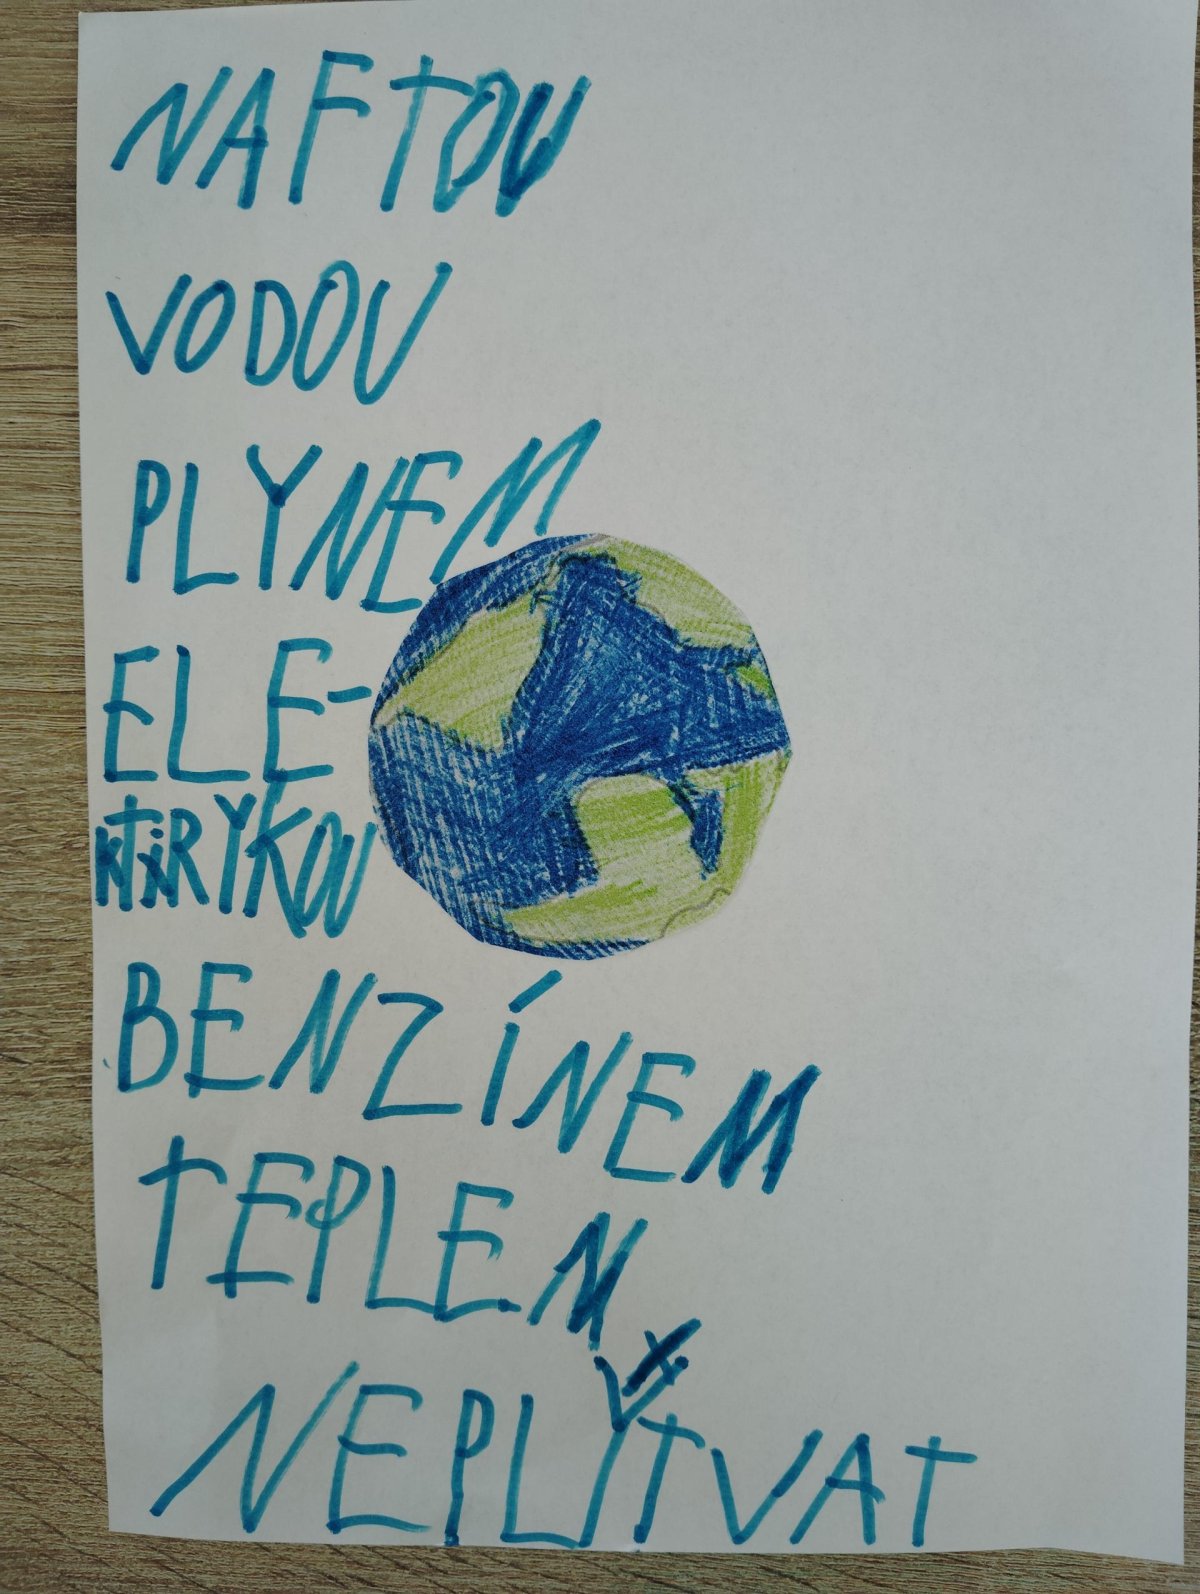 NAFTOU
VODOU
PLYNEM
ELE-
KTRYKOU
BENZÍNEM
TEPLEM
NEPLÝTVAT